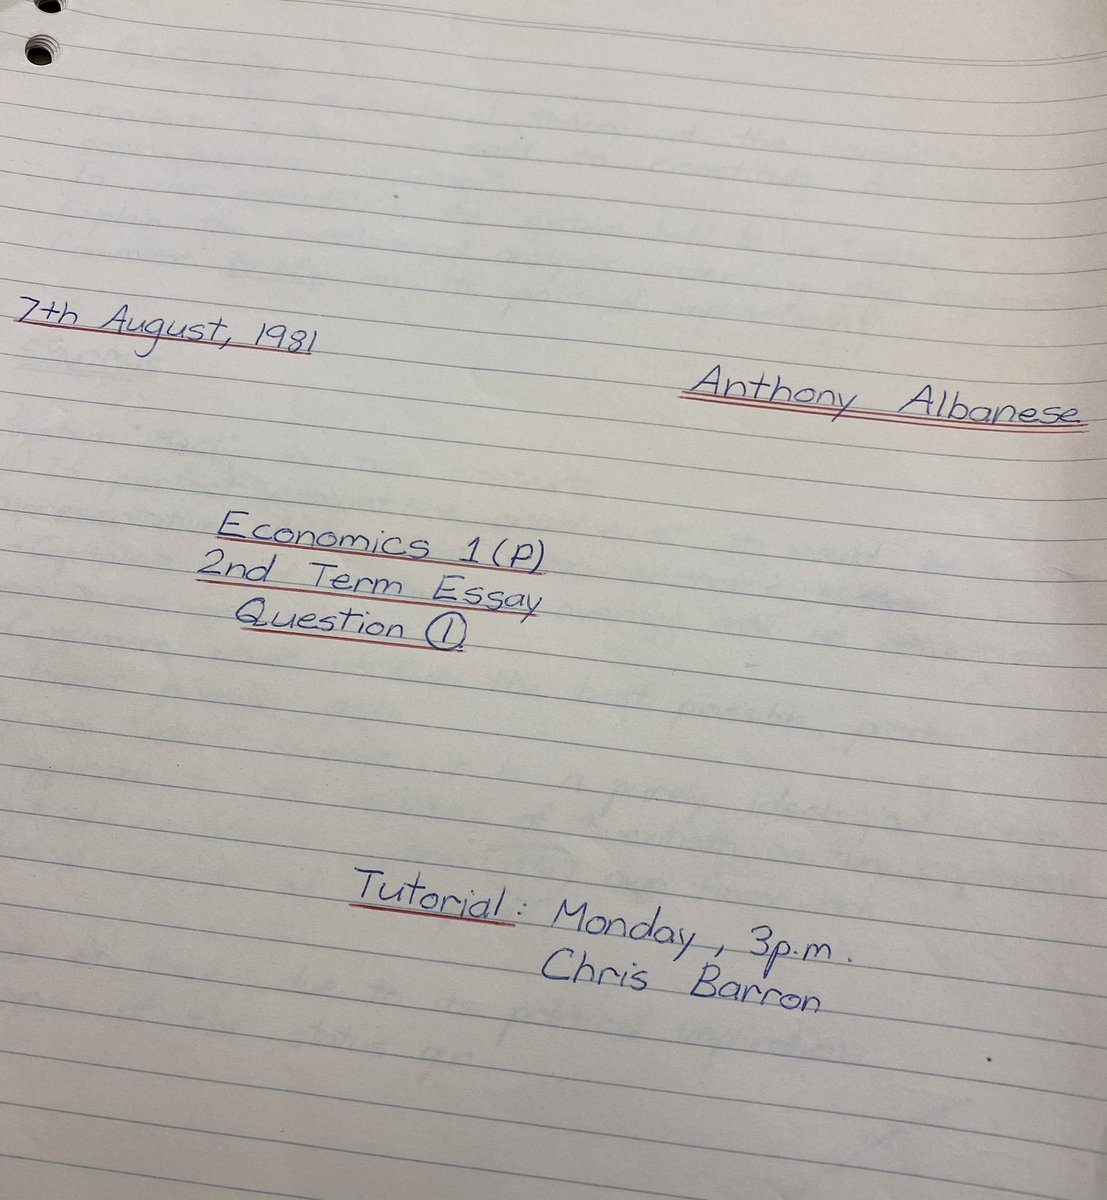 7th August, 1981
Anthony Albanese
Economics 1(P)
2nd Term Essay
Question ①
Tutorial: Monday, 3p.m.
Chris Barron